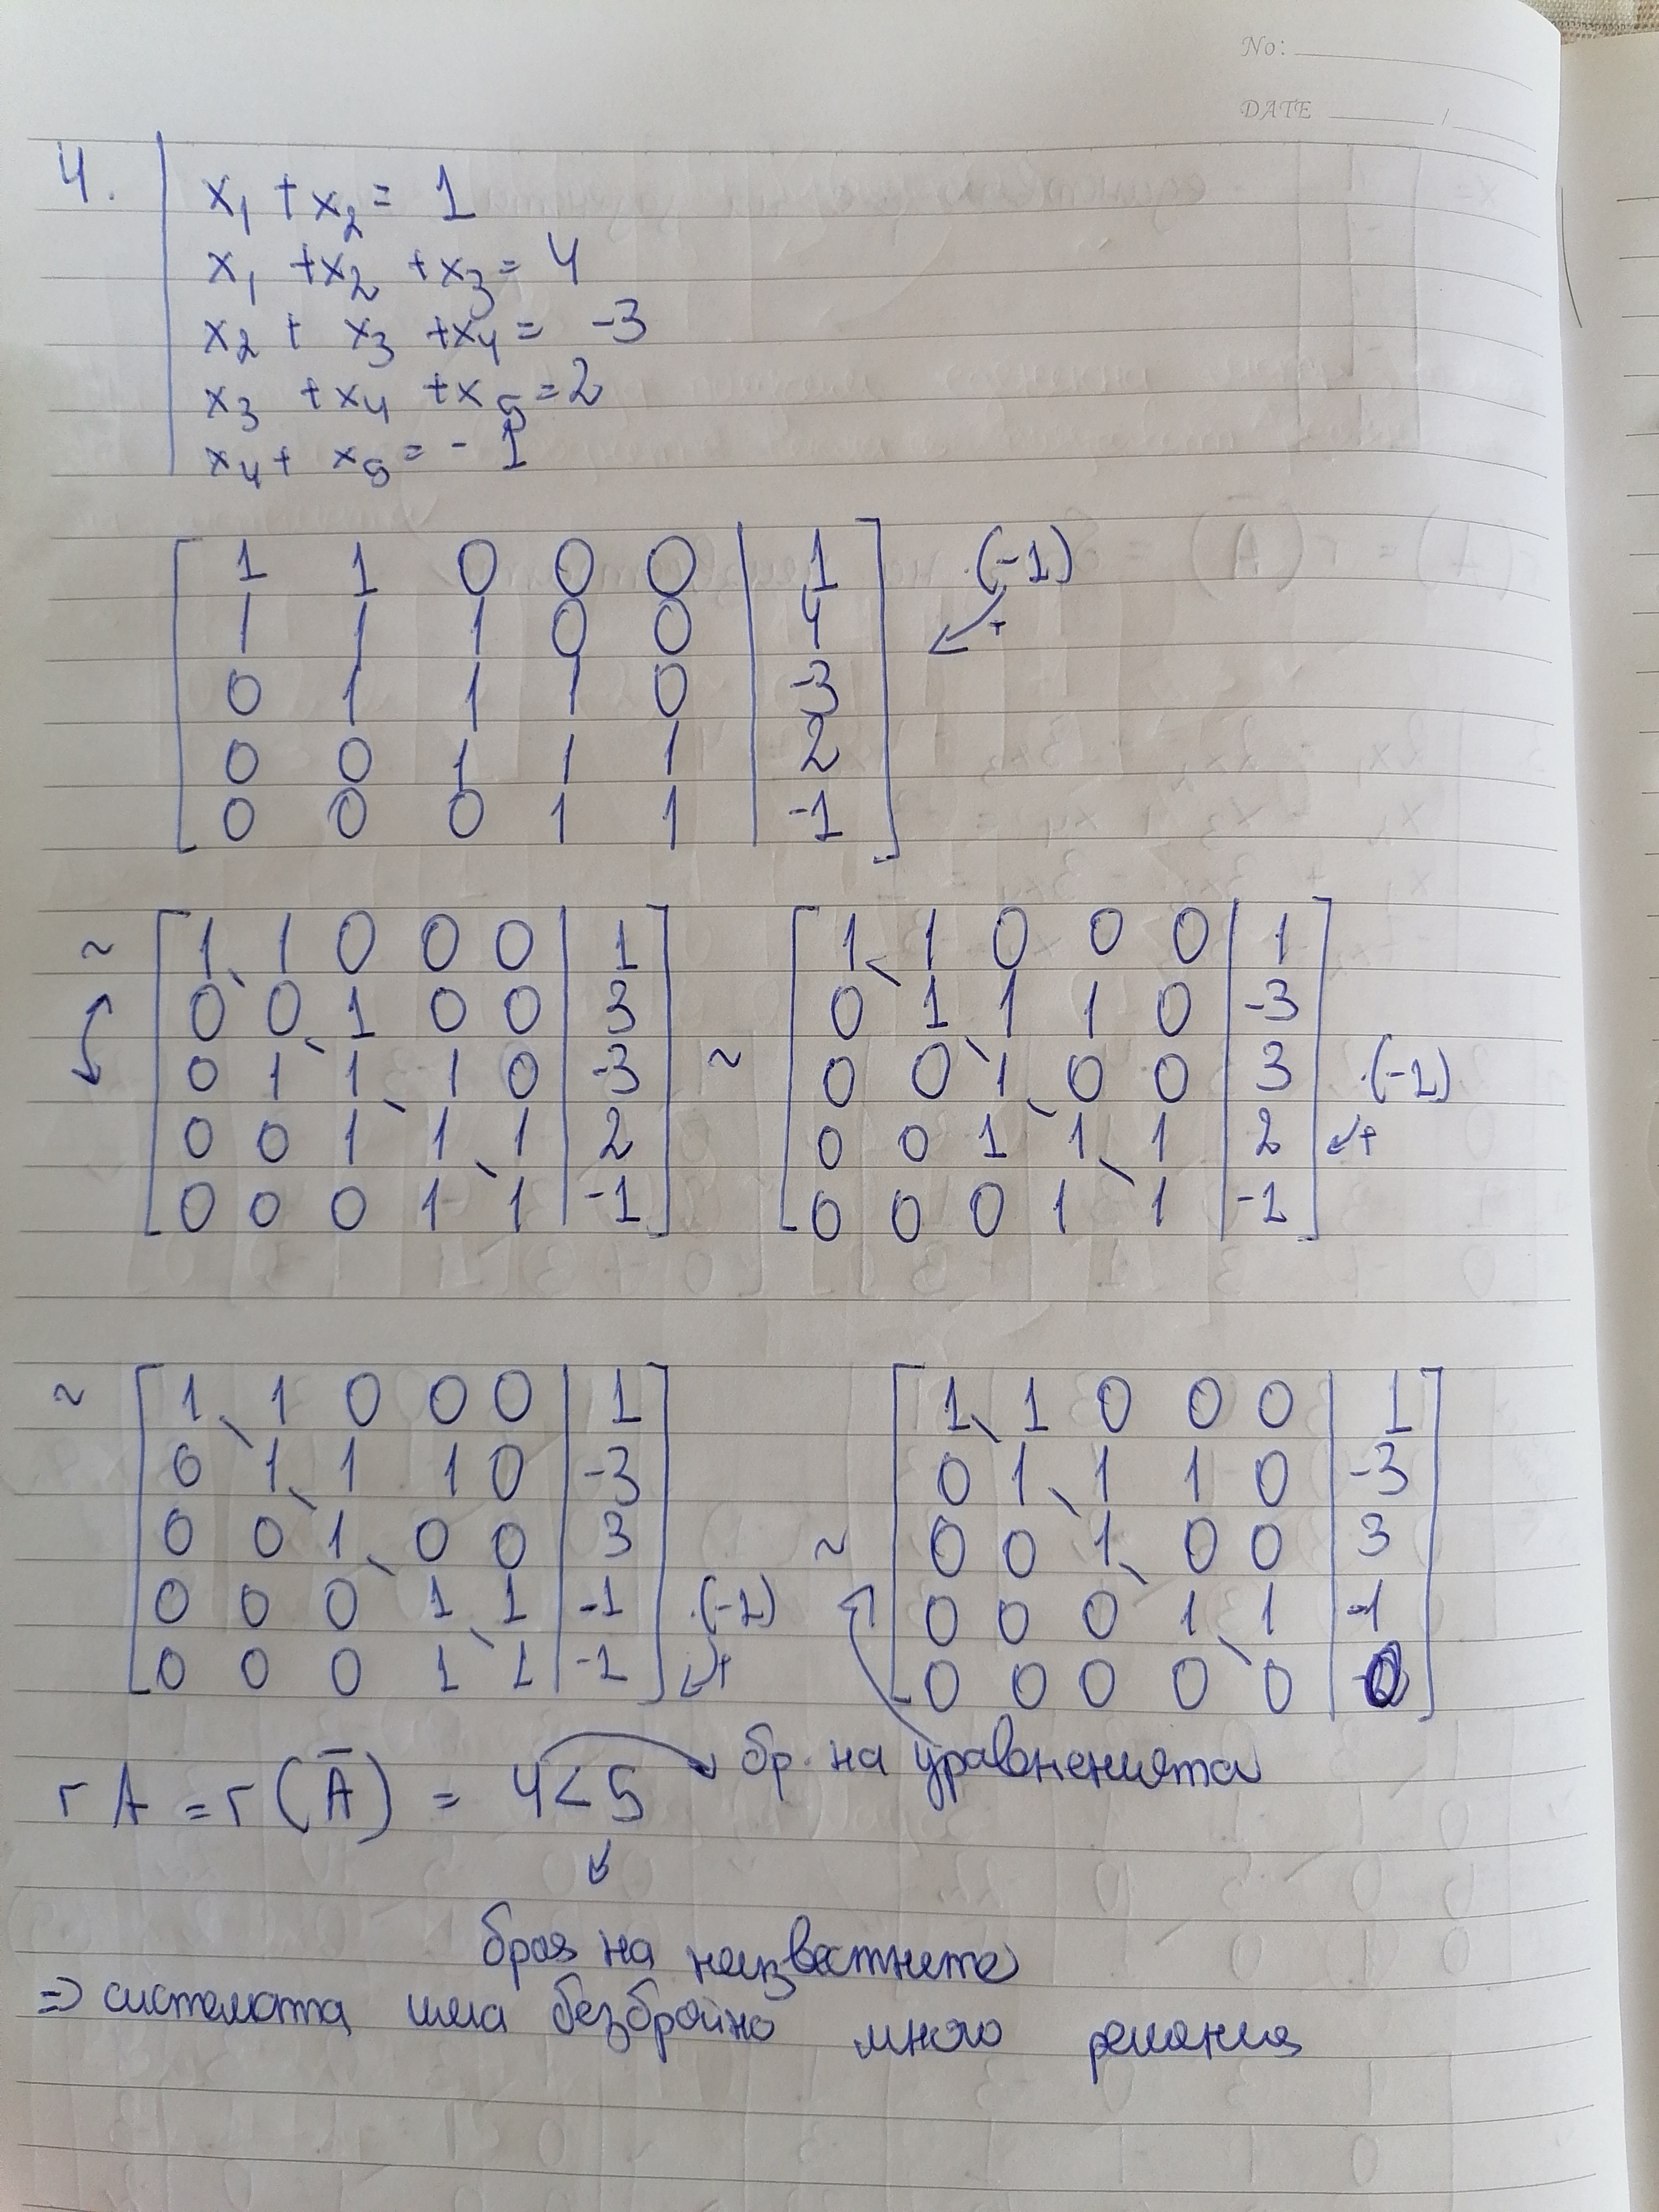 No:
DATE /
4.
x₁ + x₂ = 1
x₁ + x₂ + x₃ = 4
x₂ + x₃ + x₄ = -3
x₃ + x₄ + x₅ = 2
x₄ + x₅ = - 1
1 1 0 0 0 | 1 .(-1)
1 1 1 0 0 | 4 +
0 1 1 1 0 | -3
0 0 1 1 1 | 2
0 0 0 1 1 | -1
~ 1 1 0 0 0 | 1
0 0 1 0 0 | 3
0 1 1 1 0 | -3
0 0 1 1 1 | 2
0 0 0 1 1 | -1
~ 1 1 0 0 0 | 1
0 1 1 1 0 | -3
0 0 1 0 0 | 3 .(-1)
0 0 1 1 1 | 2 +
0 0 0 1 1 | -1
~ 1 1 0 0 0 | 1
0 1 1 1 0 | -3
0 0 1 0 0 | 3
0 0 0 1 1 | -1 .(-1)
0 0 0 1 1 | -1 +
~ 1 1 0 0 0 | 1
0 1 1 1 0 | -3
0 0 1 0 0 | 3
0 0 0 1 1 | -1
0 0 0 0 0 | 0
r A = r (Ā) = 4 < 5 бр. на уравненията
броя на неизвестните
=> системата има безбройно много решения